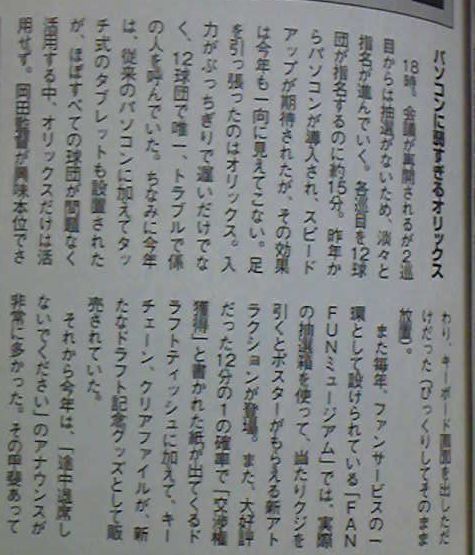 パソコンに弱すぎるオリックス
18時。会議が再開されるが2巡
目からは抽選がないため、淡々と
指名が進んでいく。各巡目を12球
団が指名するのに約15分。昨年か
らパソコンが導入され、スピード
アップが期待されたが、その効果
は今年も一向に見えてこない。足
を引っ張ったのはオリックス。入
力がぶっちぎりで遅いだけでな
く、12球団で唯一、トラブルで係
の人を呼んでいた。ちなみに今年
は、従来のパソコンに加えてタッ
チ式のタブレットも設置された
が、ほぼすべての球団が問題なく
活用する中、オリックスだけは活
用せず。岡田監督が興味本位でさ
わり、キーボード画面を出しただ
けだった(びっくりしてそのまま
放置)。
また毎年、ファンサービスの一
環として設けられている「FAN
FUNミュージアム」では、実際
の抽選箱を使って、当たりクジを
引くとポスターがもらえる新アト
ラクションが登場。また、大好評
だった12分の1の確率で「交渉権
獲得」と書かれた紙が出てくるド
ラフトティッシュに加えて、キー
チェーン、クリアファイルが、新
たなドラフト記念グッズとして販
売されていた。
それから今年は、「途中退席し
ないでください」のアナウンスが
非常に多かった。その甲斐あって